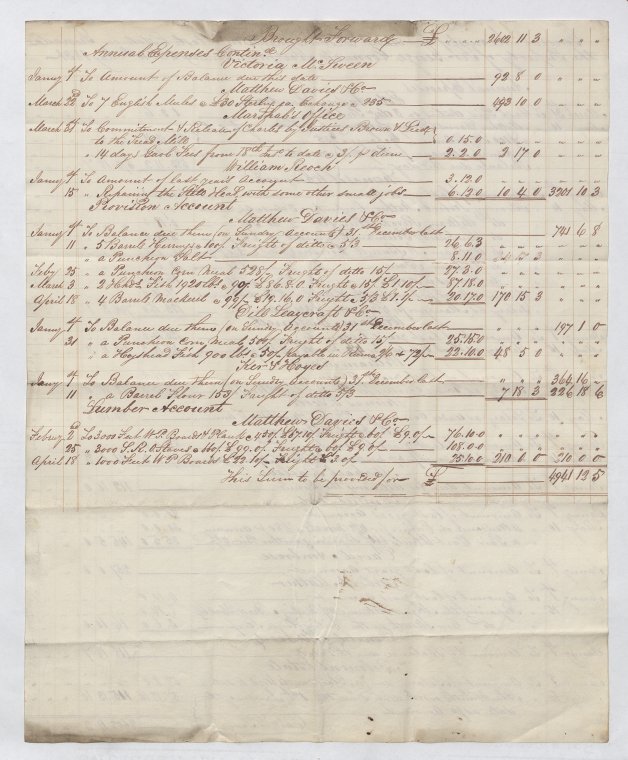 Brought Forward £ " " " 2602 11 3 " " "
Annual Expenses Contind
Victoria McSween
Janry 1st To Amount of Balance due this date 92 8 0 " " "
Matthew Davies & Co
March 22 To 7 English Mules @ £30 Sterlg ea. Exchange @ 235 493 10 0 " " "
Marshal's Office
March 31 To Commitment & Release of Charles by Justices Brown &
to the Tread Mill 0.15.0
" 14 days Gaol Fees from 18th Inst to date @ 3/ p diem 2.2.0 2 17 0 " " "
William
Janry 1st To Amount of last years account 3.12.0
15 " Repairing the Still Head, with some other small jobs 6.12.0 10 4 0 3201 10 3
Provision Account
Matthew Davies & Co
Janry 1st To Balance due them (on Sundry Accounts) 31st December last " " " 741 6 8
11 " 5 Barrels Herrings @ 100/ Freights of ditto @ 5/3 26.6.3
" a Puncheon Salt 8.11.0
Feby 25 " a Puncheon Corn Meal £ Freight of ditto 15/ 27.3.0
March 3 " 2 Hhds Fish 1920 lbs @ 90/ £86.8.0 Freight @ 15/ £1.10/ 87.18.0
April 18 " 4 Barrels Mackerel @ 99/ £19.16.0 Freight @ 5/3 £1.1/ 20.17.0 170 15 3
Dill Leaycraft & Co
Janry 1st To Balance due them (on Sundry Accounts) 31st December last " " " 197 1 0
21 " a Puncheon Corn Meal Freight of ditto 15/ 25.15.0
" a Hogshead Fish 900 lbs @ 50/ payable in @ 72/ 22.10.0 48 5 0 " " "
Kier & Hoyes
Janry 1st To Balance due them (on Sundry Accounts) 31st December last 364 16 "
11 " a Barrel Flour 153/ Freight of ditto 5/3 7 18 3 226 18 6
Lumber Account
Matthew Davies & Co
Febry 2d To 3000 Feet W.P. Boards & Plank @ 450/ £67.10/ Freight @ 60/ £9.0/ 76.10.0 " " "
25 " 3000 R.O. Staves @ 660/ £99.0/ Freight @ 60/ £9.0/ 108.0.0 " " "
April 18 " 1000 Feet W.P. Boards £22.10/ Freight £3.0/ 25.10.0 210 0 0 210 0 0
This Sum to be provided for £ 4941 12 5